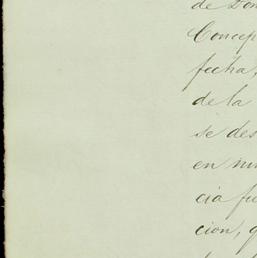 de Don
Concep
fecha,
de la
se des
en nu
cia fu
cion, q